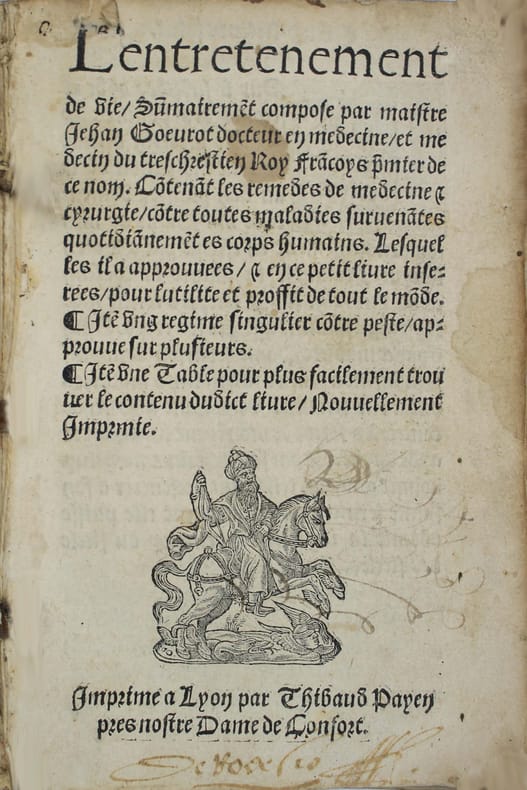 Lentretenement
de vie/ Sũmairemẽt compose par maistre
Jehan Goeurot docteur en medecine/et me
decin du treschrestien Roy Frãcoys p̃mier de
ce nom. Cõtenãt les remedes de medecine ⁊
cyrurgie/cõtre toutes maladies suruenãtes
quotidiãnemẽt es corps humains. Lesquel
les il a approuuees/ ⁊ en ce petit liure inse-
rees/pour lutilite et proffit de tout le mõde.
¶ Jtẽ vng regime singulier cõtre peste/ap-
prouue sur plusieurs.
¶ Jtẽ vne Table pour plus facilement trou
uer le contenu dudict liure/ Nouuellement
Jmprmie.
Jmprime a Lyon par Thibaud Payen
pres nostre Dame de Confort.